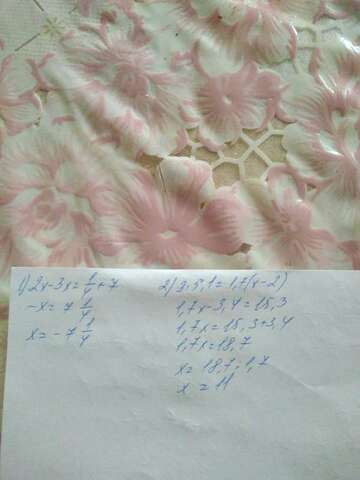 1) 2x-3x=1/4+7
-x=7 1/4
x=-7 1/4
2) 3·5,1=1,7(x-2)
1,7x-3,4=15,3
1,7x=15,3+3,4
1,7x=18,7
x=18,7:1,7
x=11